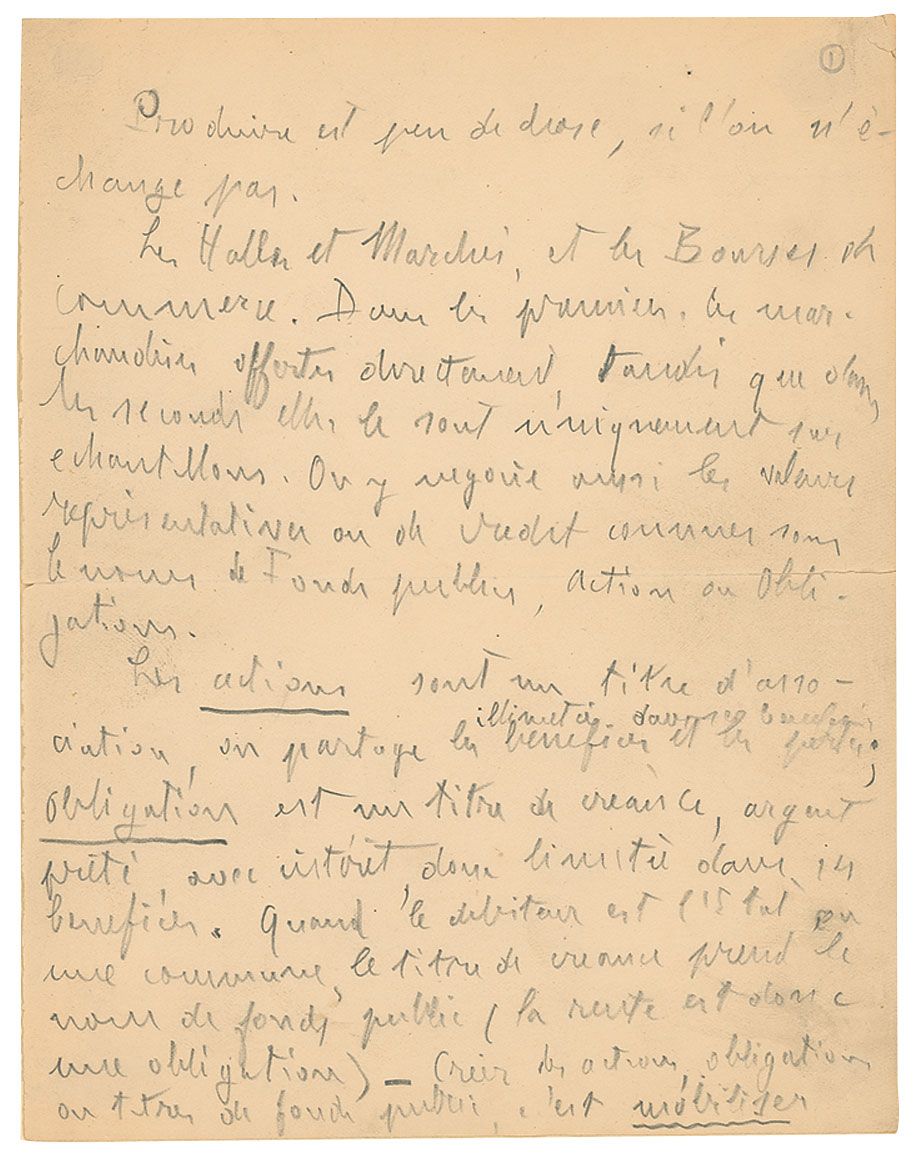 1
Produire est peu de chose, si l'on n'é-
change pas.
Les Halles et Marchés, et les Bourses de
Commerce. Dans les premiers, les mar-
chandises offertes directement, tandis que dans
les seconds elles le sont uniquement sur
echantillons. On y negocie aussi les valeurs
représentatives ou de credit connues sous
le noms de Fonds publics, Action ou Obli-
gations.
Les actions sont un titre d'asso-
illimités
ciation, on partage les benefices et les pertes;
Obligation est un titre de créance, argent
prêté, avec intérêt, donc limité dans ses
benefices. Quand le debiteur est l'Etat, ou
une commune, le titre de creance prend le
nom de fonds public (la rente est donc
une obligation) – Créer des actions, obligations
ou titres de fonds publics, c'est mobiliser